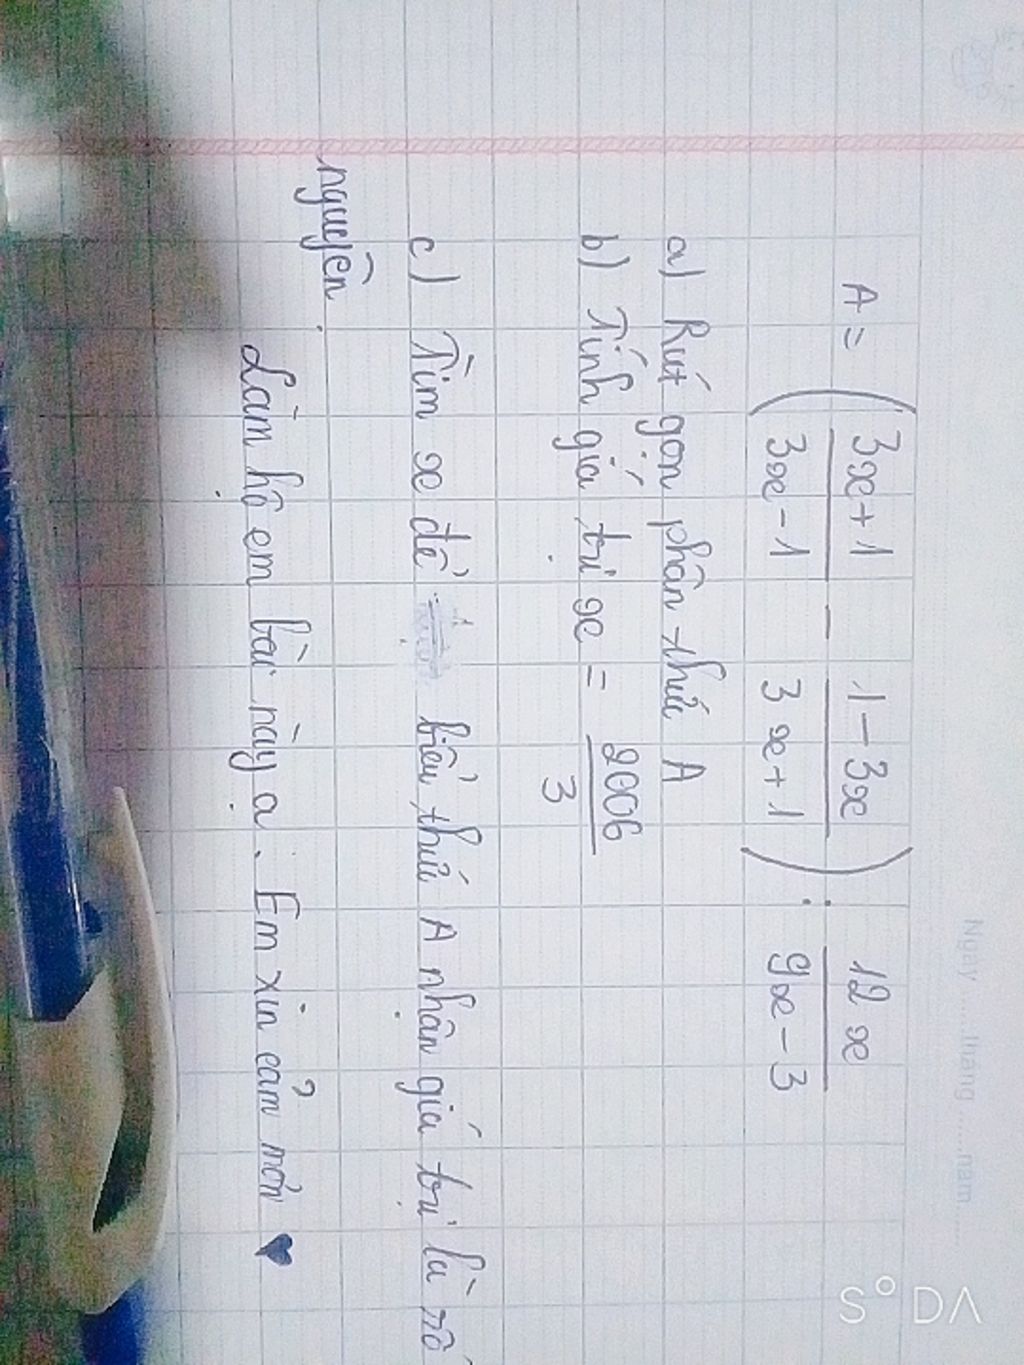 Ngày ........ tháng ........ năm ........
A = ( \frac{3x+1}{3x-1} - \frac{1-3x}{3x+1} ) : \frac{12x}{9x-3}
a) Rút gọn phân thức A
b) Tính giá trị x = \frac{2006}{3}
c) Tìm x để biểu thức A nhận giá trị là số
nguyên.
Làm hộ em bài này ạ. Em xin cảm mơn ♥
SODA